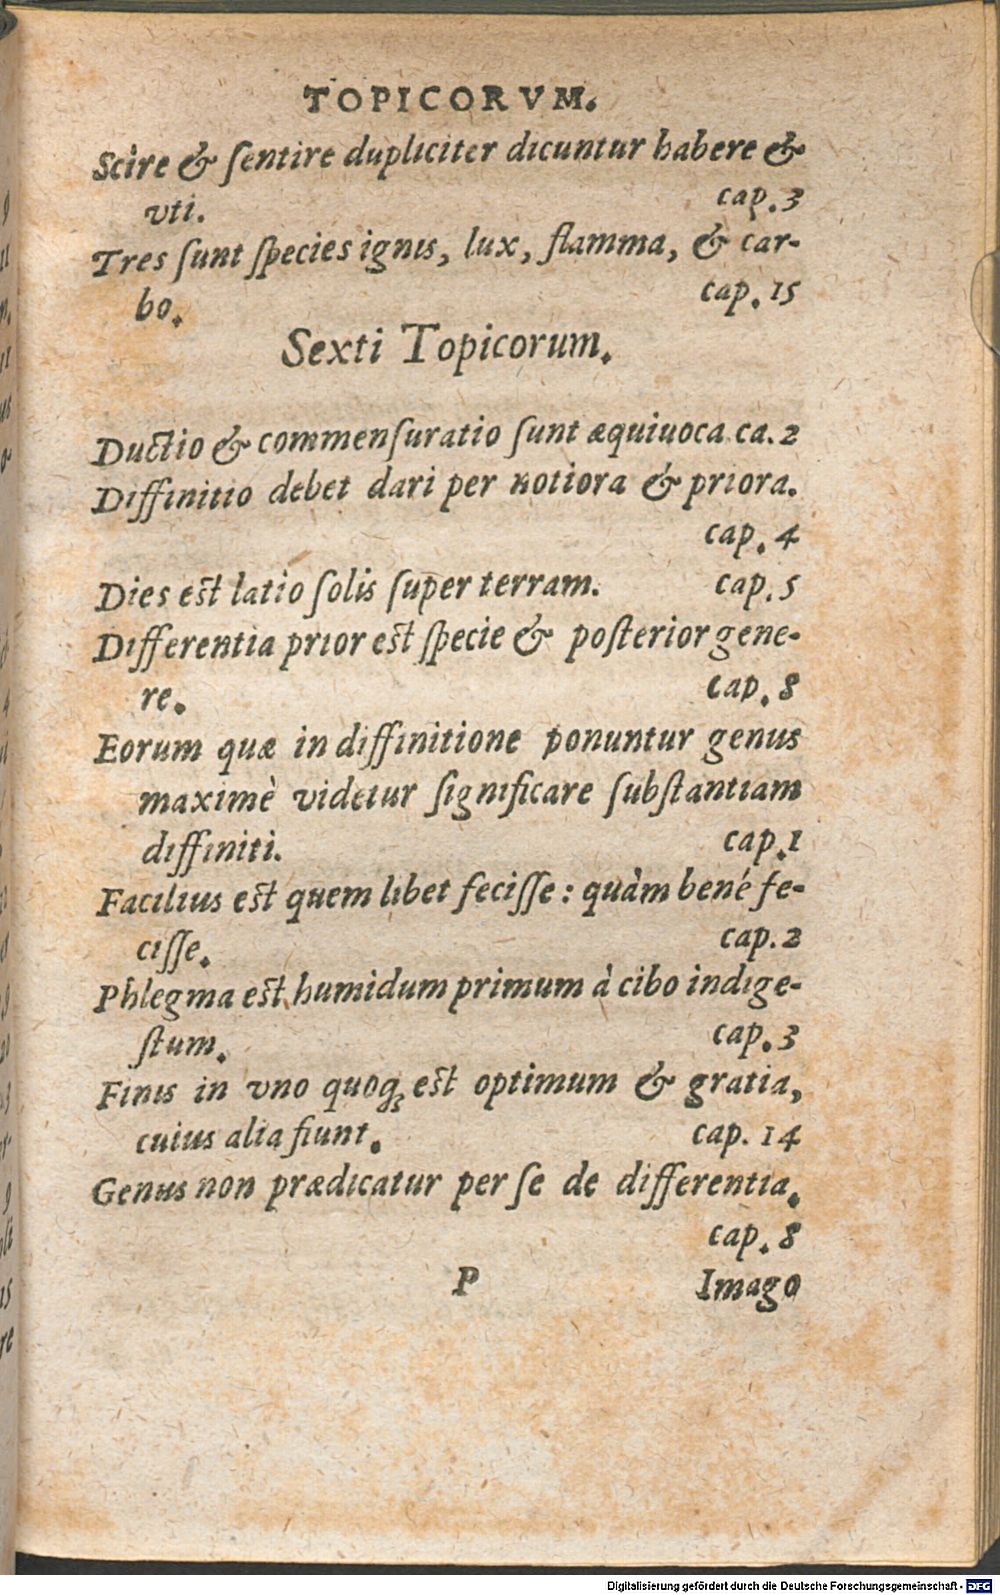 TOPICORVM.
Scire & ſentire dupliciter dicuntur habere &
vti. cap. 3
Tres ſunt ſpecies ignis, lux, flamma, & car-
bo. cap. 15
Sexti Topicorum.
Ductio & commenſuratio ſunt æquiuoca ca. 2
Diffinitio debet dari per notiora & priora.
cap. 4
Dies eſt latio ſolis ſuper terram. cap. 5
Differentia prior eſt ſpecie & poſterior gene-
re. cap. 8
Eorum quæ in diffinitione ponuntur genus
maximè videtur ſignificare ſubſtantiam
diffiniti. cap. 1
Facilius eſt quem libet feciſſe : quàm bené fe-
ciſſe. cap. 2
Phlegma eſt humidum primum à cibo indige-
ſtum. cap. 3
Finis in vno quoq; eſt optimum & gratia,
cuius alia fiunt. cap. 14
Genus non prædicatur per ſe de differentia.
cap. 8
P Imago
Digitalisierung gefördert durch die Deutsche Forschungsgemeinschaft - DFG